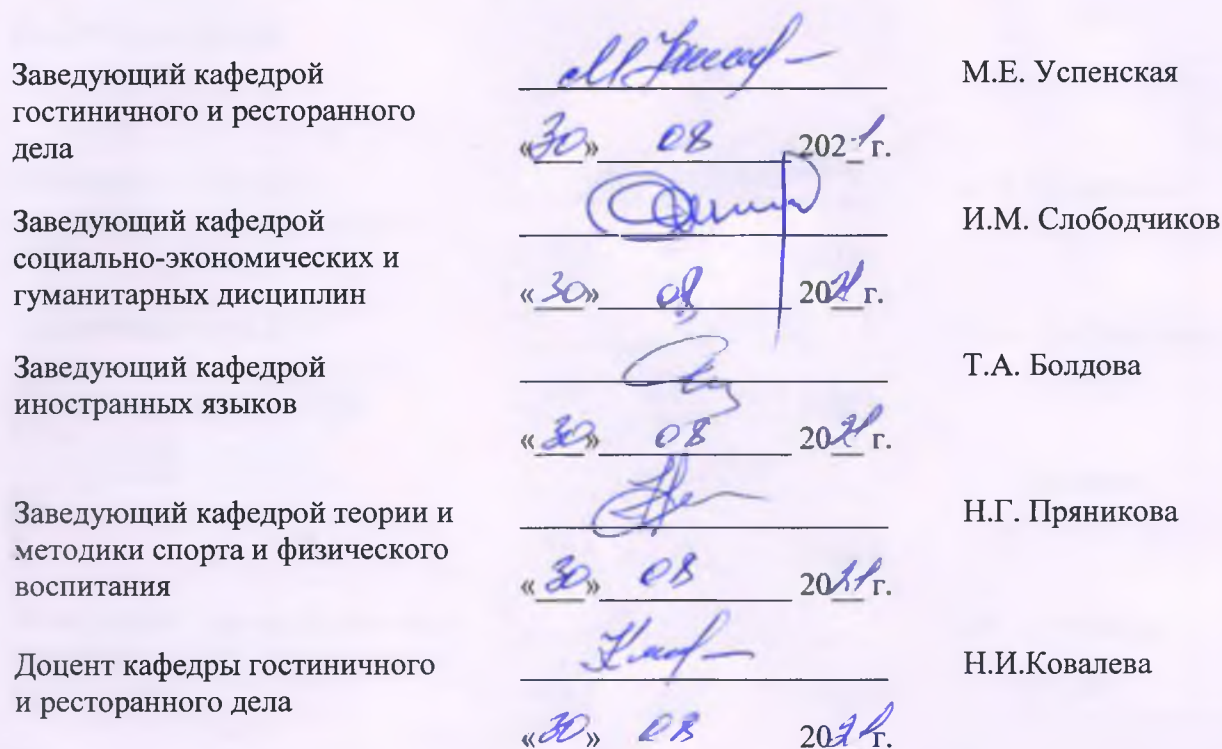 Заведующий кафедрой
гостиничного и ресторанного
дела
М.Е. Успенская
«30» 08 2021г.
Заведующий кафедрой
социально-экономических и
гуманитарных дисциплин
И.М. Слободчиков
«30» 08 2021 г.
Заведующий кафедрой
иностранных языков
Т.А. Болдова
«30» 08 2021 г.
Заведующий кафедрой теории и
методики спорта и физического
воспитания
Н.Г. Пряникова
«30» 08 2021г.
Доцент кафедры гостиничного
и ресторанного дела
Н.И.Ковалева
«30» 08 2021г.